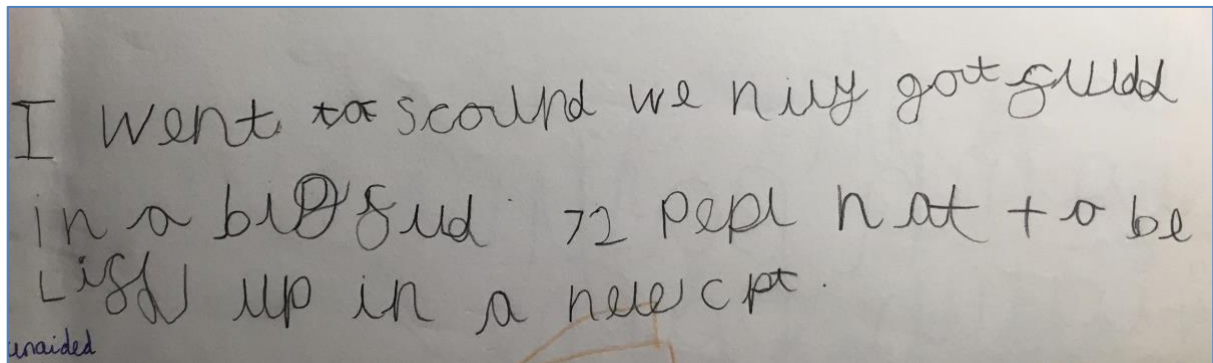 I went to scound we niy got fludd
in a big flud 72 pepl hat to be
Lifd up in a helecpt.
unaided